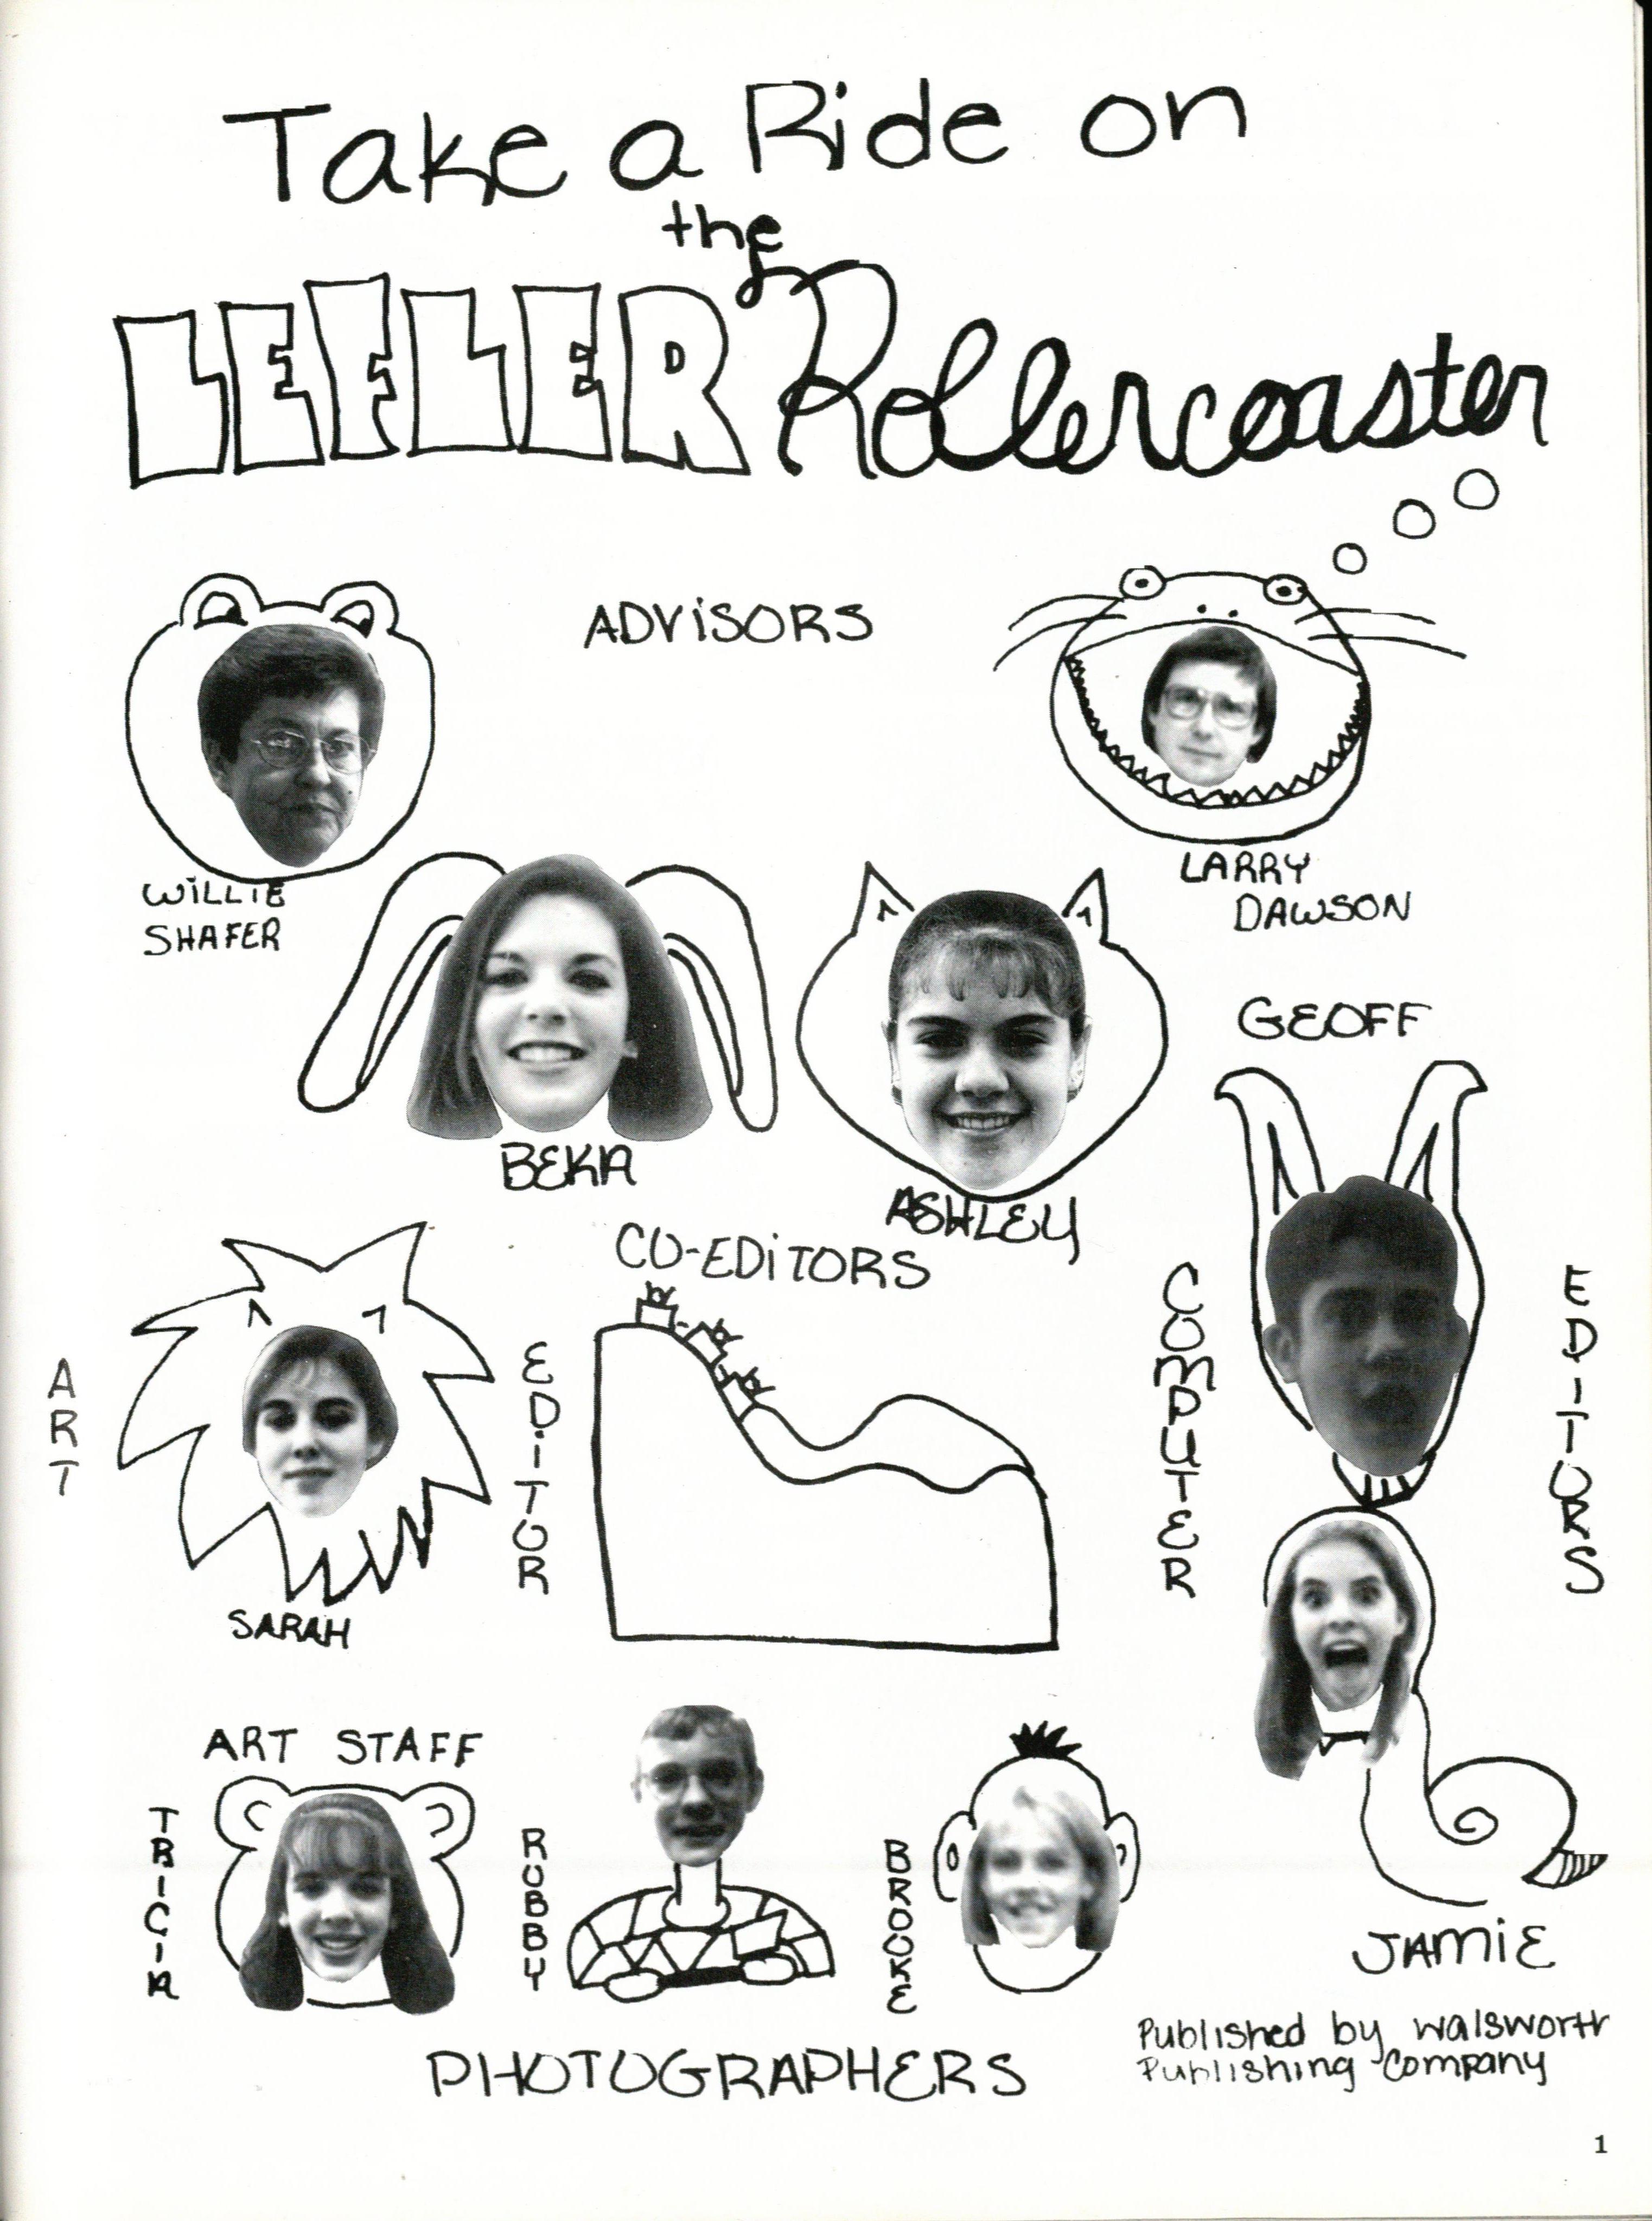 Take a Ride on
the
LEFLER Rollercoaster
ADViSORS
WiLLiE
SHAFER
LARRY
DAWSON
BEKA
ASHLEY
GEOFF
CO-EDiTORS
ART
EDITOR
SARAH
COMPUTER
EDITORS
ART STAFF
TRICIA
ROBBY
BROOKE
JAMiE
PHOTOGRAPHERS
Published by Walsworth
Publishing Company
1